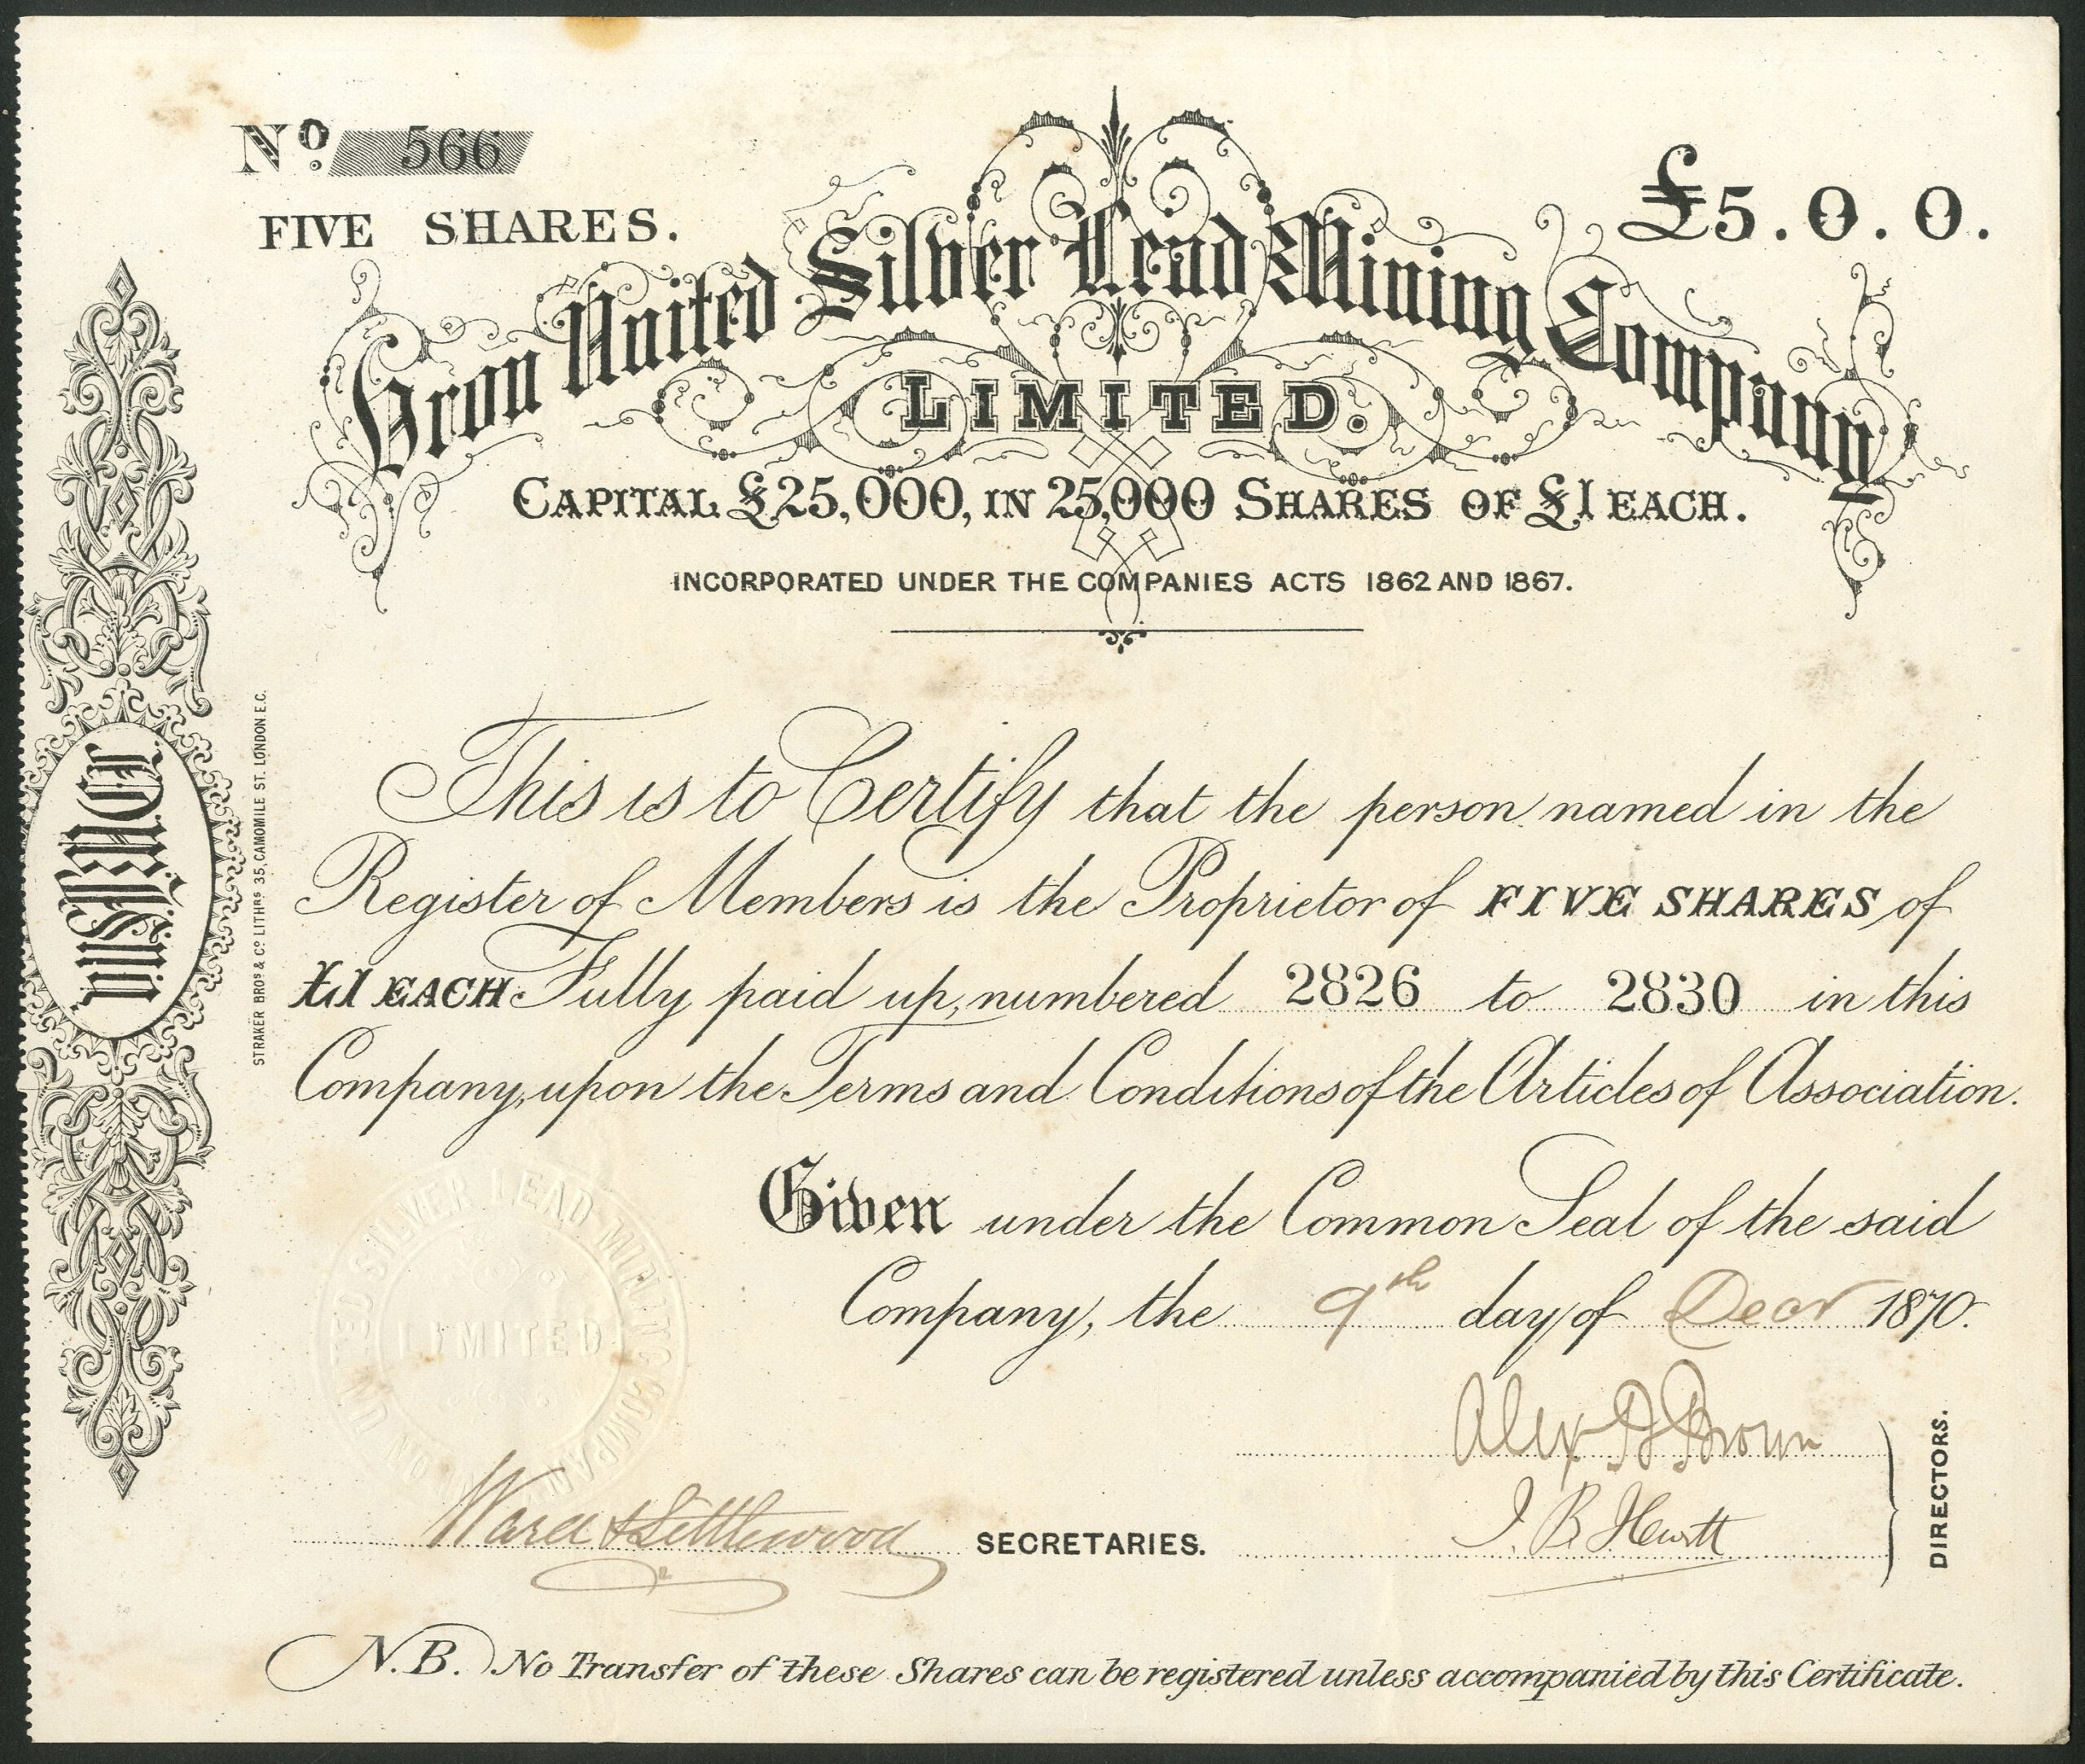 Nº 566
FIVE SHARES.
£5.0.0.
Vron United Silver Lead Mining Company
LIMITED.
CAPITAL £25,000, IN 25,000 SHARES OF £1 EACH.
INCORPORATED UNDER THE COMPANIES ACTS 1862 AND 1867.
STRAKER BROS & CO LITHRS 35, CAMOMILE ST. LONDON E.C.
This is to Certify that the person named in the
Register of Members is the Proprietor of FIVE SHARES of
£1 EACH Fully paid up, numbered 2826 to 2830 in this
Company, upon the Terms and Conditions of the Articles of Association.
Given under the Common Seal of the said
Company, the 9th day of Decr 1870.
UNITED SILVER LEAD MINING COMPANY
LIMITED
Alex D Brown
J. B. Hewitt
DIRECTORS.
Ward & Littlewood SECRETARIES.
N.B. No Transfer of these Shares can be registered unless accompanied by this Certificate.